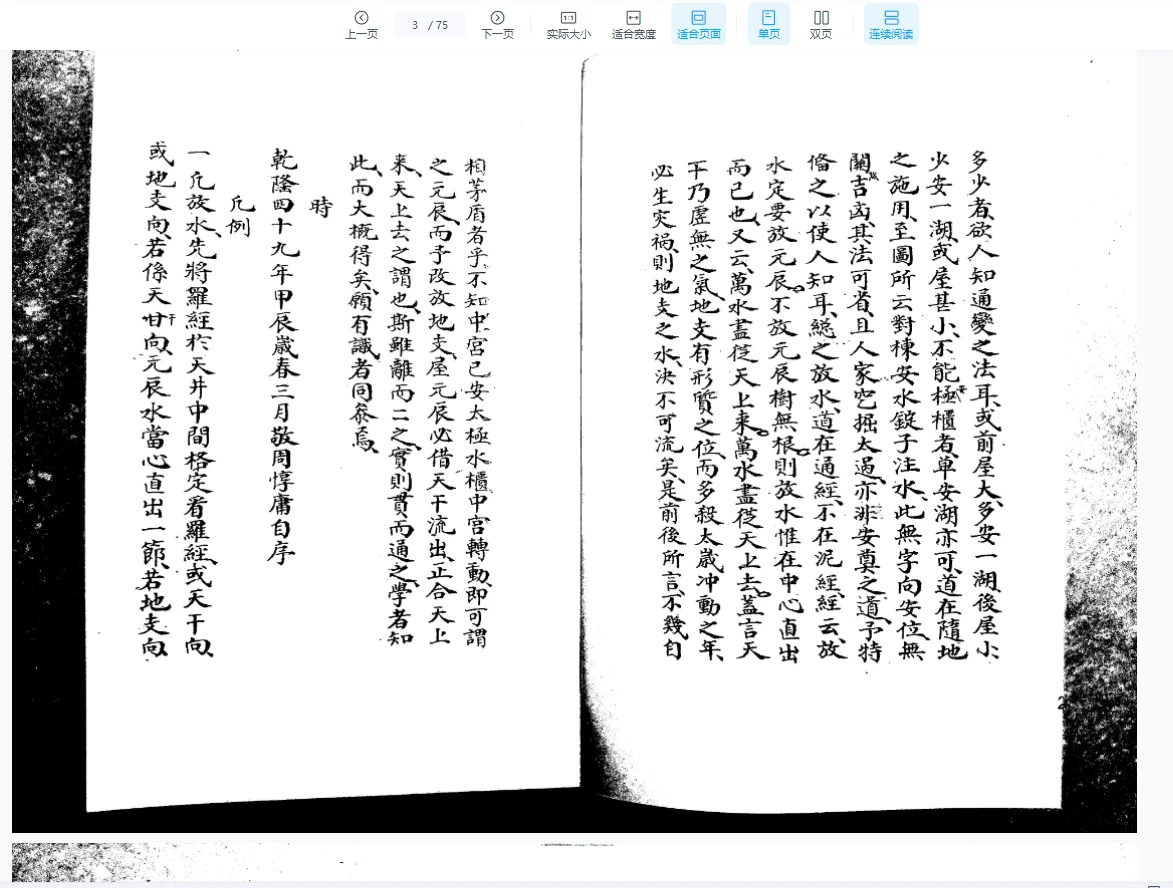 上一页
3 / 75
下一页
1:1
实际大小
适合宽度
适合页面
单页
双页
连续阅读
多少者、欲人知通變之法耳、或前屋大、多安一湖、後屋小、
少安一湖、或屋甚小、不能極櫃者、单安湖亦可、道在隨地
之施用、至圖所云對棟安水錠子注水、此無字向安位、無
關吉凶、其法可省、且人家穵掘太過、亦非安奠之道、予特
俻之以使人知耳、緫之放水、道在通經、不在泥經、經云、放
水定要放元辰、不放元辰樹無根、則放水惟在中心直出
而已也、又云、萬水盡從天上来、萬水盡從天上去、蓋言天
干乃虛無之氣、地支有形質之位、而多殺太歲冲動之年、
必生灾禍、則地支之水、决不可流矣、是前後所言、不幾自
相茅盾者乎、不知中宮已安太極水櫃、中宮轉動、即可謂
之元辰、而予改放地支、屋元辰必借天干流出、正合天上
来、天上去之謂也、斯雖離而二之、實則貫而通之、學者知
此、而大概得矣、願有識者同叅焉、
時
乾隆四十九年甲辰歲春三月敬周惇庸自序
凢例
一凢放水、先將羅經於天井中間格定、看羅經、或天干向、
或地支向、若係天甘干向、元辰水當心直出一節、若地支向、
2